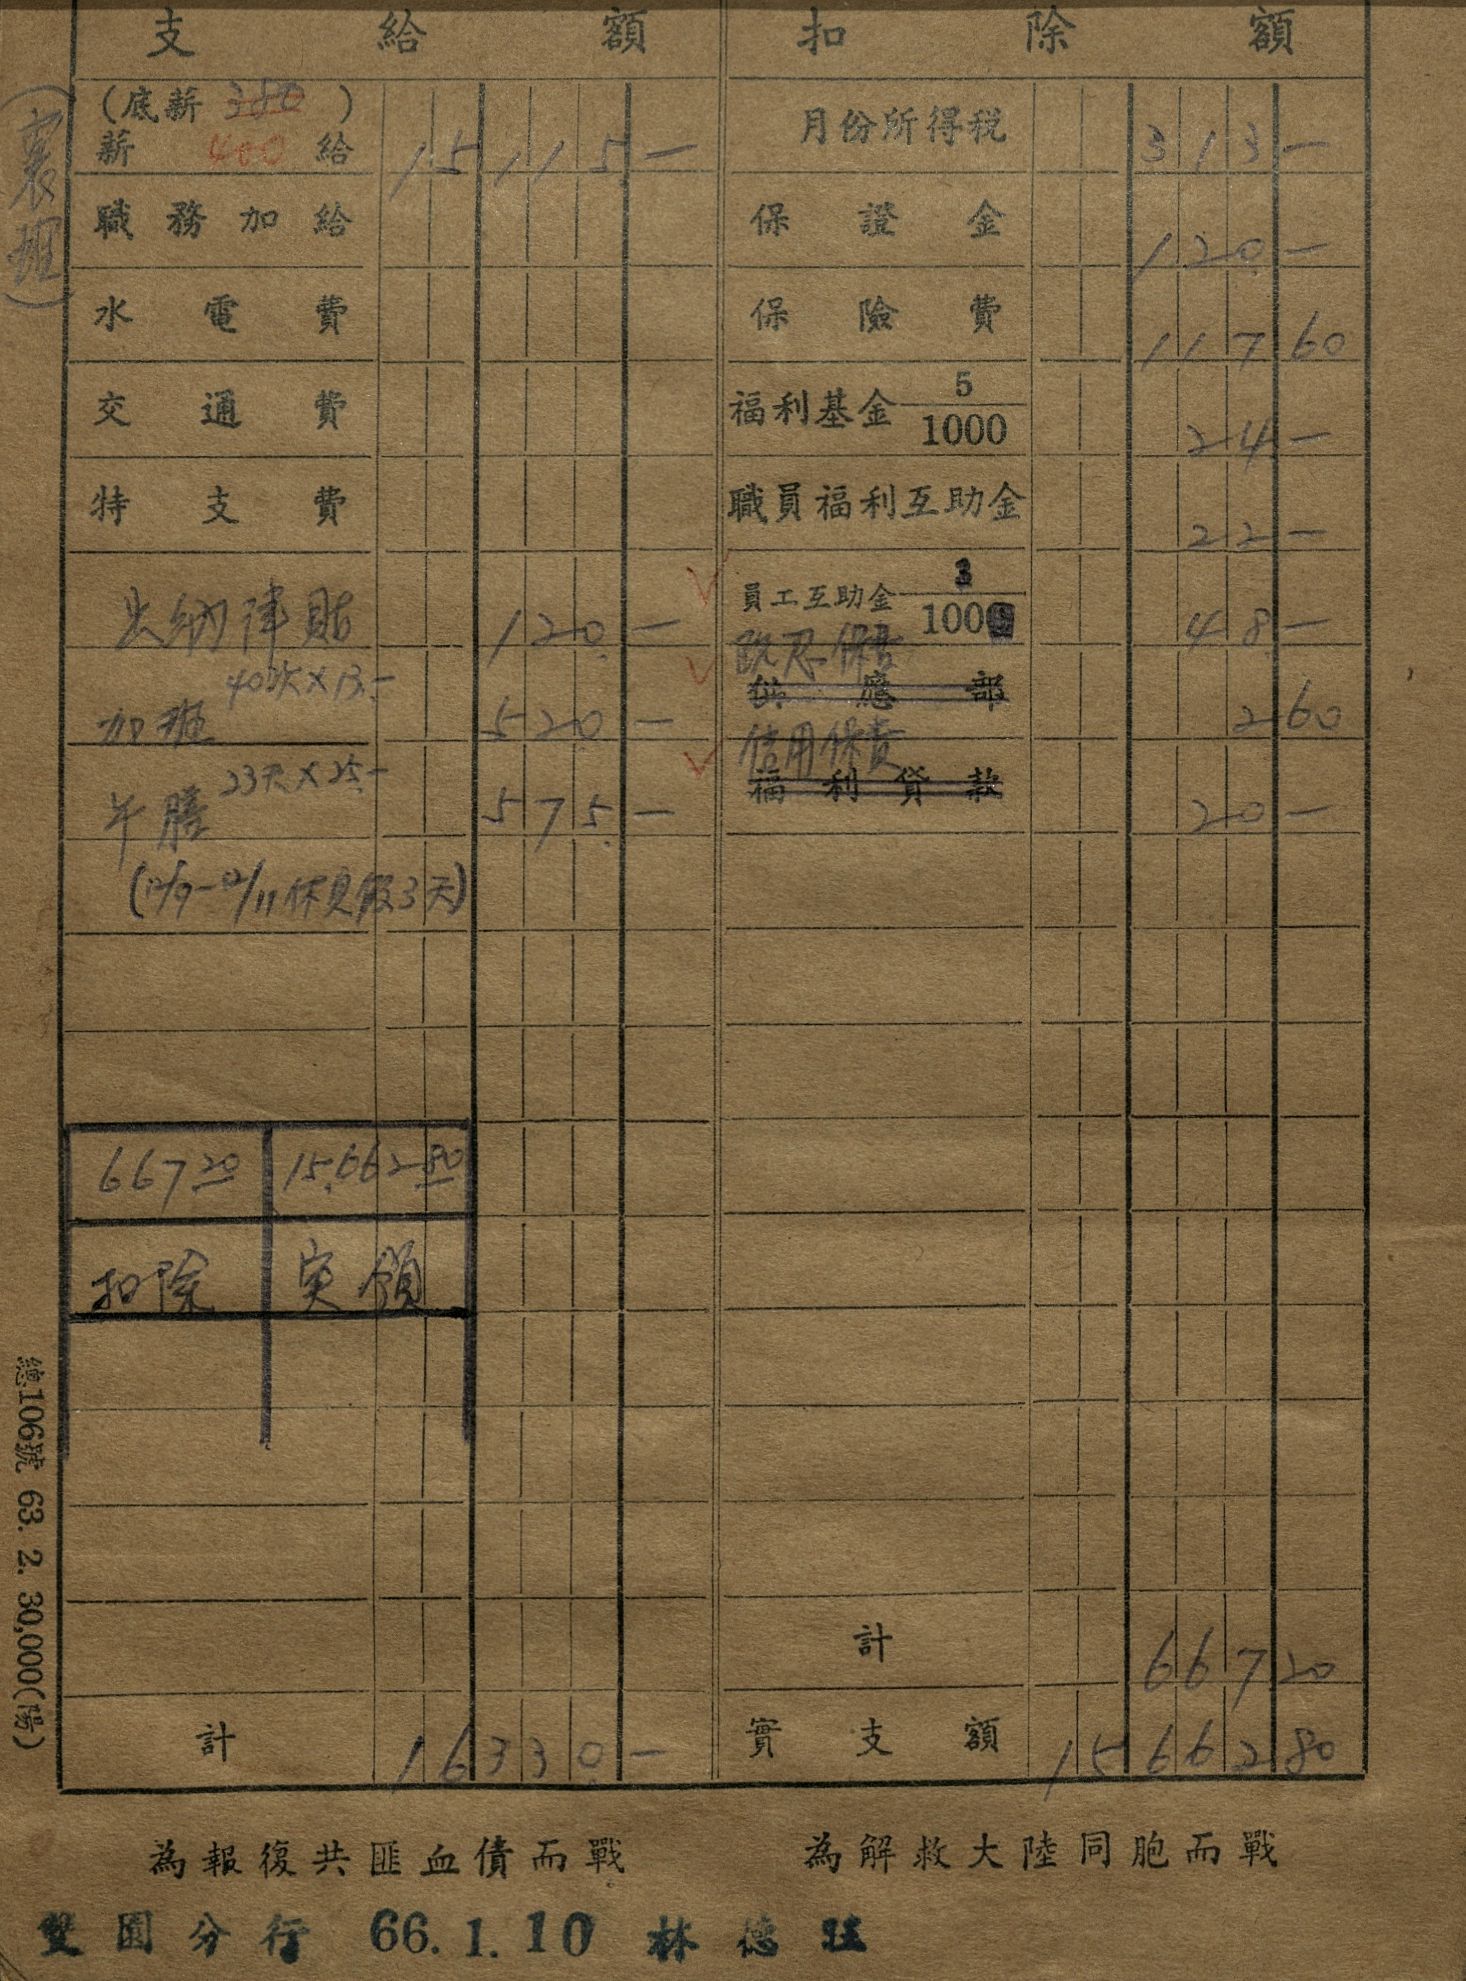 支給額 扣除額
(底薪 380 )
薪 400 給 15115.—
月份所得稅 313—
職務加給
保證金 120.—
水電費
保險費 117 60
交通費
福利基金 5/1000 24.—
特支費
職員福利互助金 22—
出納津貼 120.—
員工互助金 3/100 48.—
40次×13.—
加班 520.—
供應部 2 60
信用保費
23天×25.—
午膳 575.—
福利貸款 20—
(12/9-12/11休息假3天)
667 20 15,662 80
扣除 实領
計 667 20
計 16330.—
實支額 15662 80
為報復共匪血債而戰 為解救大陸同胞而戰
雙園分行 66.1.10 林德
(襄理)
總106號 63. 2. 30,000(陽)